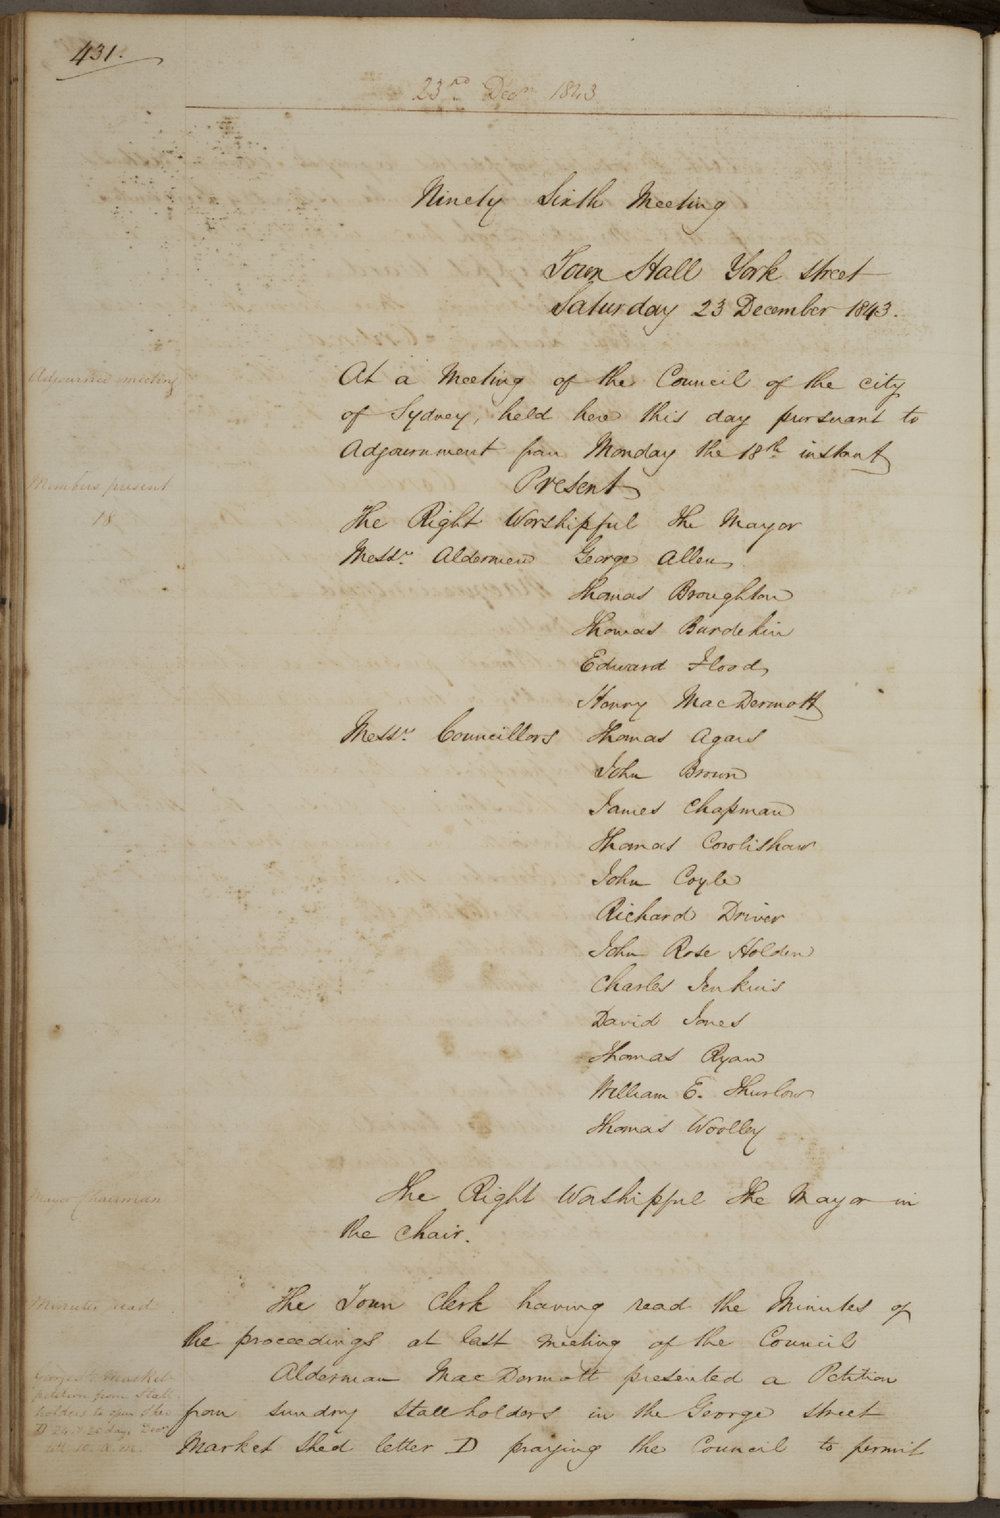 431.
23rd Decr 1843
Ninety Sixth Meeting
Town Hall York street
Saturday 23 December 1843.
Adjourned meeting
At a Meeting of the Council of the city
of Sydney, held here this day pursuant to
Adjournment from Monday the 18th instant
Members present
18
Present
The Right Worshipful The Mayor
Messrs. Aldermen George Allen
Thomas Broughton
Thomas Burdekin
Edward Flood
Henry MacDermott
Messrs. Councillors Thomas Agars
John Brown
James Chapman
Thomas Cowlishaw
John Coyle
Richard Driver
John Rose Holden
Charles Jenkins
David Jones
Thomas Ryan
William E. Thurlow
Thomas Woolley
Mayor Chairman
The Right Worshipful The Mayor in
the chair.
Minutes read
The Town Clerk having read the Minutes of
the proceedings at last meeting of the Council
George St Market
petition from Stall
holders to open Shed
D 24 & 25 days Decr
till 10 A.M.
Alderman MacDermott presented a Petition
from sundry stallholders in the George street
Market Shed letter D praying the Council to permit